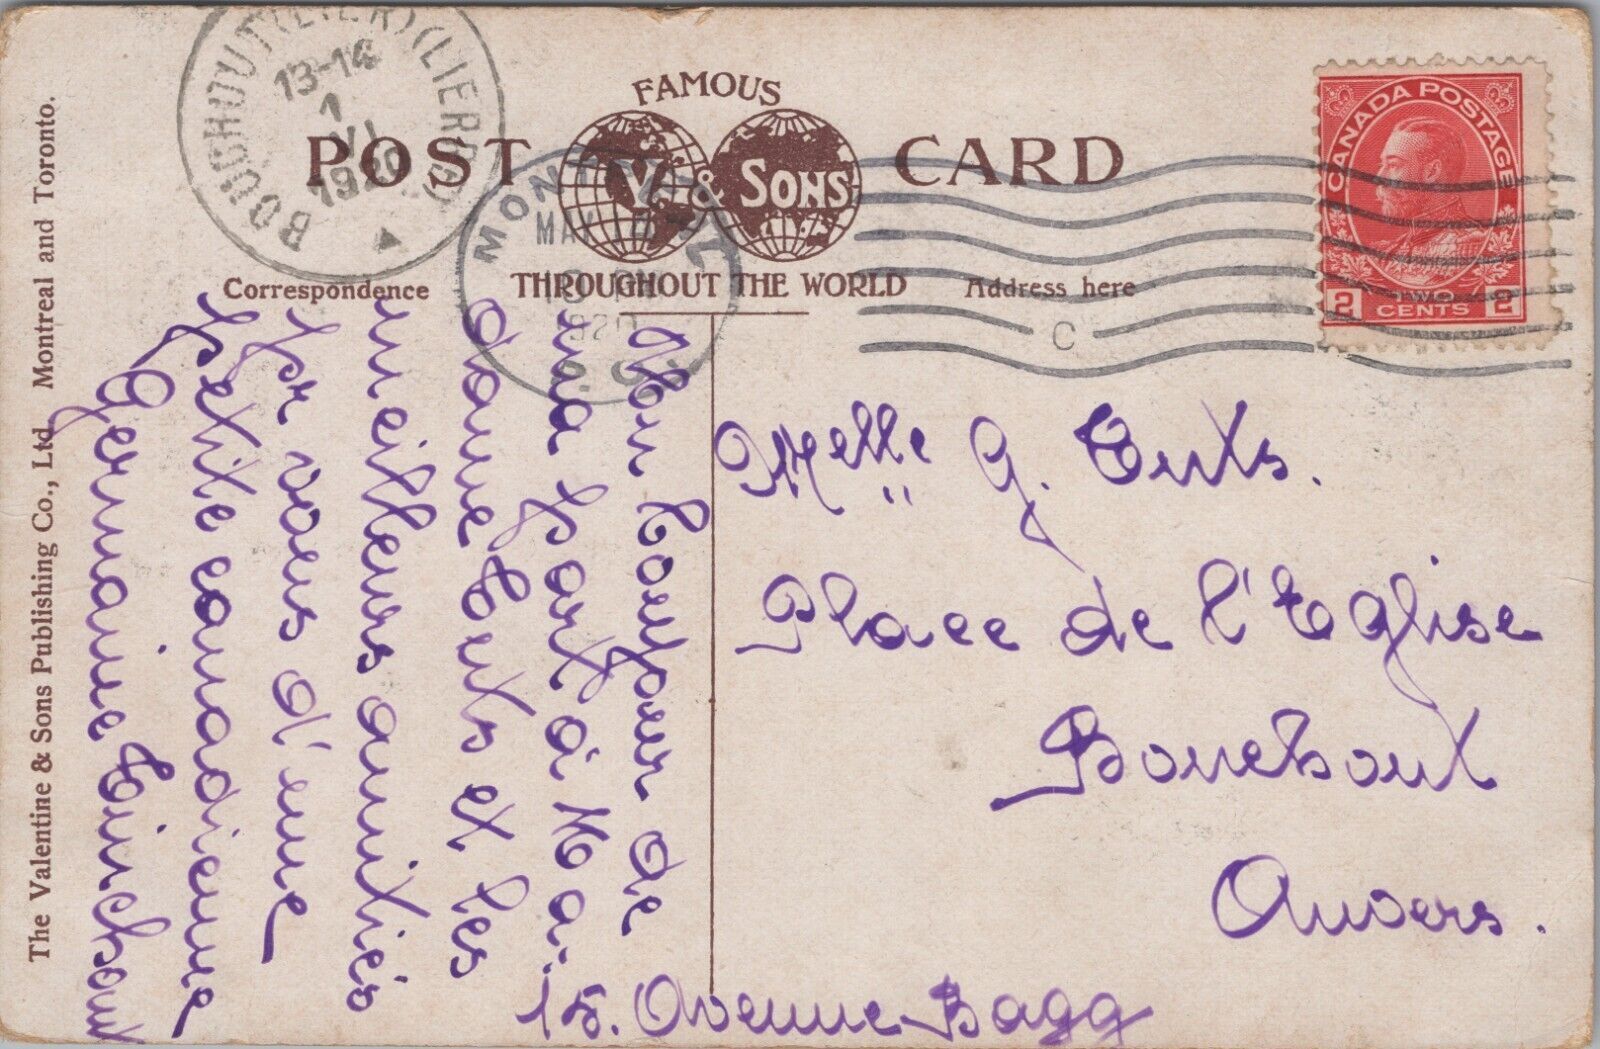 FAMOUS
POST V & SONS CARD
THROUGHOUT THE WORLD
Correspondence
Address here
The Valentine & Sons Publishing Co., Ltd. Montreal and Toronto.
BOUCHOUT (LIER) (LIERRE)
13-14
1
VI
1920
MONTREAL
MAY 10
PM
1920
P.Q.
C
CANADA POSTAGE
2 TWO CENTS 2
Melle G. Ceuts.
Place de l'Eglise
Bouchout
Anvers.
Un bonjour de
ma part à Ma-
dame Ceuts et les
meilleurs amitiés
pr vous d'une
petite canadienne
Germaine
15. Avenue Bagg